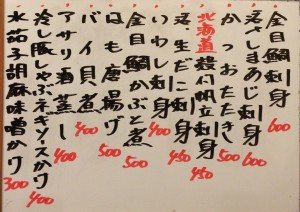 金目鯛刺身 600
しまあじ刺身 600
かつおたたき 500
北海道 襟付帆立刺身 450
生だこ刺身 450
いわし刺身 400
金目鯛かぶと煮 500
はも唐揚げ 500
バイ貝煮 400
アサリ酒蒸し 400
冷し豚しゃぶネギソースかけ 400
水茄子胡麻味噌かけ 300